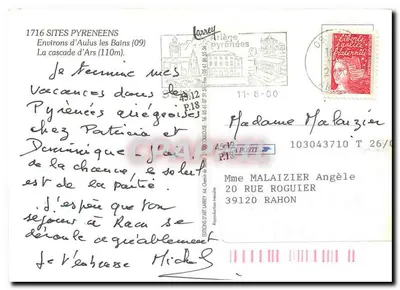 1716 SITES PYRENEENS
Environs d'Aulus les Bains (09)
La cascade d'Ars (110m).
Je termine mes
vacances dans les
Pyrénées ariégeoises
chez Patricia et
Dominique. J'ai
de la chance, le soleil
est de la partie.
J'espère que ton
séjour à Rahon se
déroule agréablement
Je t'embrasse Michel
Larrey
45-12
P.18
ariège
pyrénées
11-8-00
Liberté
Egalité
Fraternité
Madame Malaizier
103043710 T 26/0
45-12
P.18
LA POSTE
Mme MALAIZIER Angèle
20 RUE ROGUIER
39120 RAHON